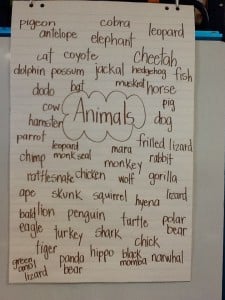 pigeon cobra
antelope elephant leopard
cat coyote cheetah
dolphin possum jackal hedgehog fish
dodo bat muskrat horse
cow Animals pig
hamster dog
parrot leopard mara frilled lizard
chimp monk seal monkey rabbit
rattlesnake chicken wolf gorilla
ape skunk squirrel hyena lizard
bald lion penguin turtle polar
eagle turkey shark bear
tiger chick
green panda hippo black narwhal
anol bear mamba
lizard